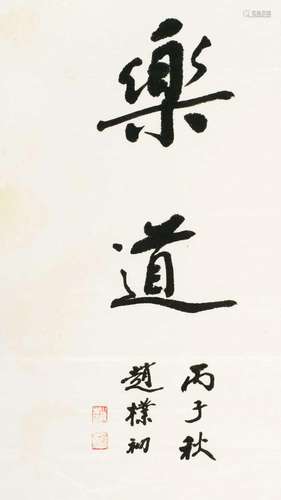 樂道
丙子秋
趙樸初